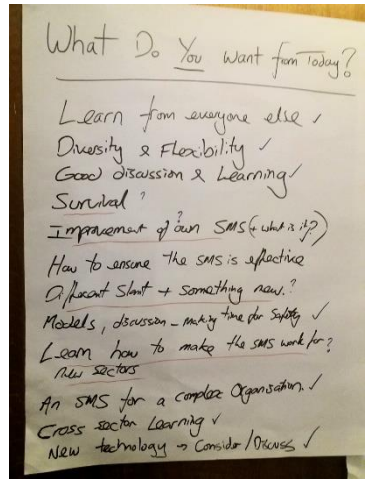 What Do You Want from Today?
Learn from everyone else ✓
Diversity & Flexibility ✓
Good discussion & Learning ✓
Survival ?
Improvement of own ? SMS (+ what is it?)
How to ensure the SMS is effective
Different slant + something new. ?
Models, discussion - making time for Safety ✓
Learn how to make the SMS work for ?
new sectors
An SMS for a complex Organisation. ✓
Cross sector Learning ✓
New technology → Consider / Discuss ✓